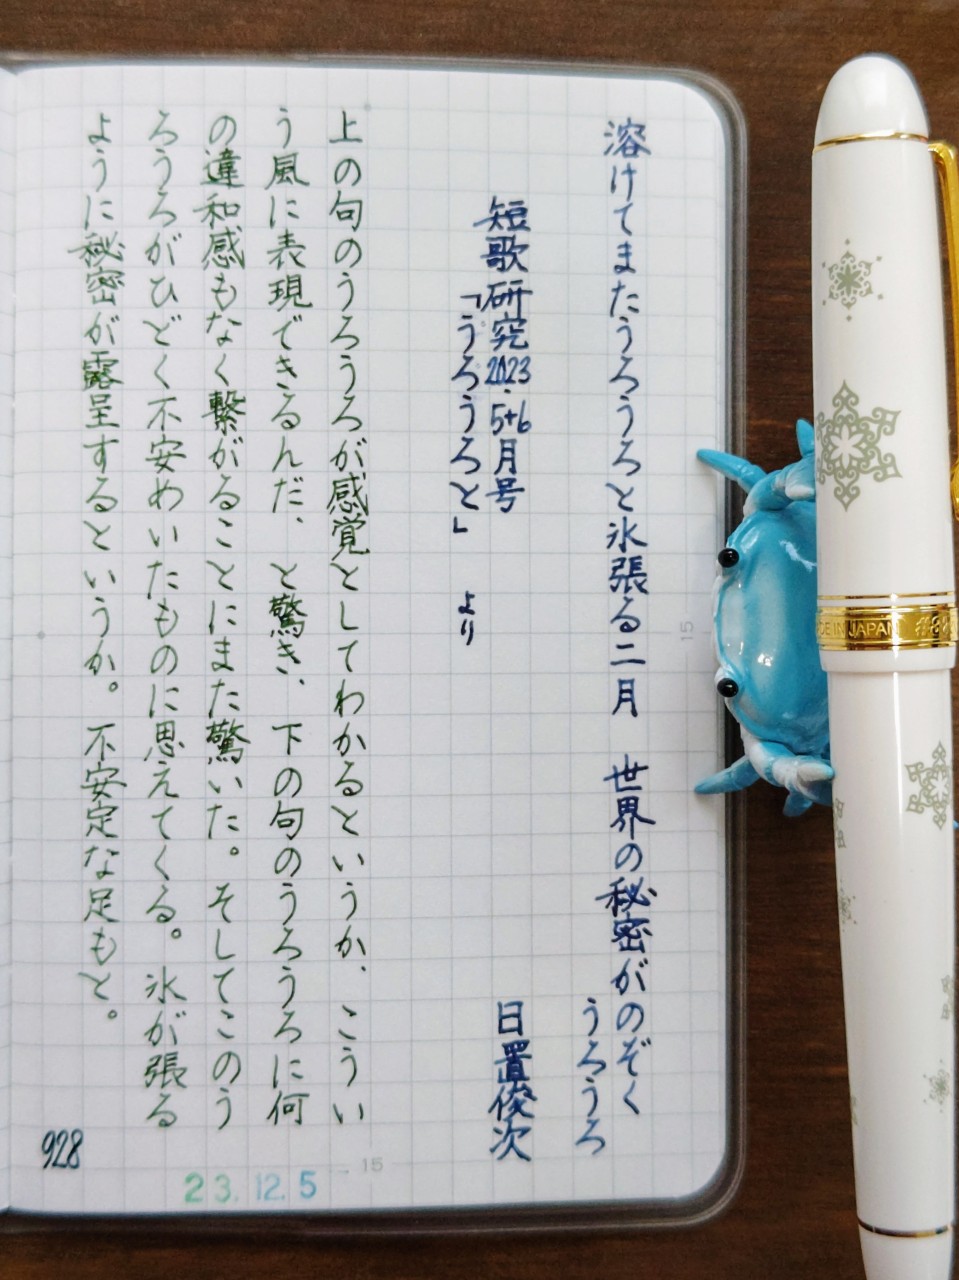 溶けてまたうろうろと氷張る二月　世界の秘密がのぞく
うろうろ
短歌研究2023.5+6月号
「うろうろと」　より
日置俊次
上の句のうろうろが感覚としてわかるというか、こうい
う風に表現できるんだ、と驚き、下の句のうろうろに何
の違和感もなく繋がることにまた驚いた。そしてこのう
ろうろがひどく不安めいたものに思えてくる。氷が張る
ように秘密が露呈するというか。不安定な足もと。
928
23.12.5
15
15
DE IN JAPAN